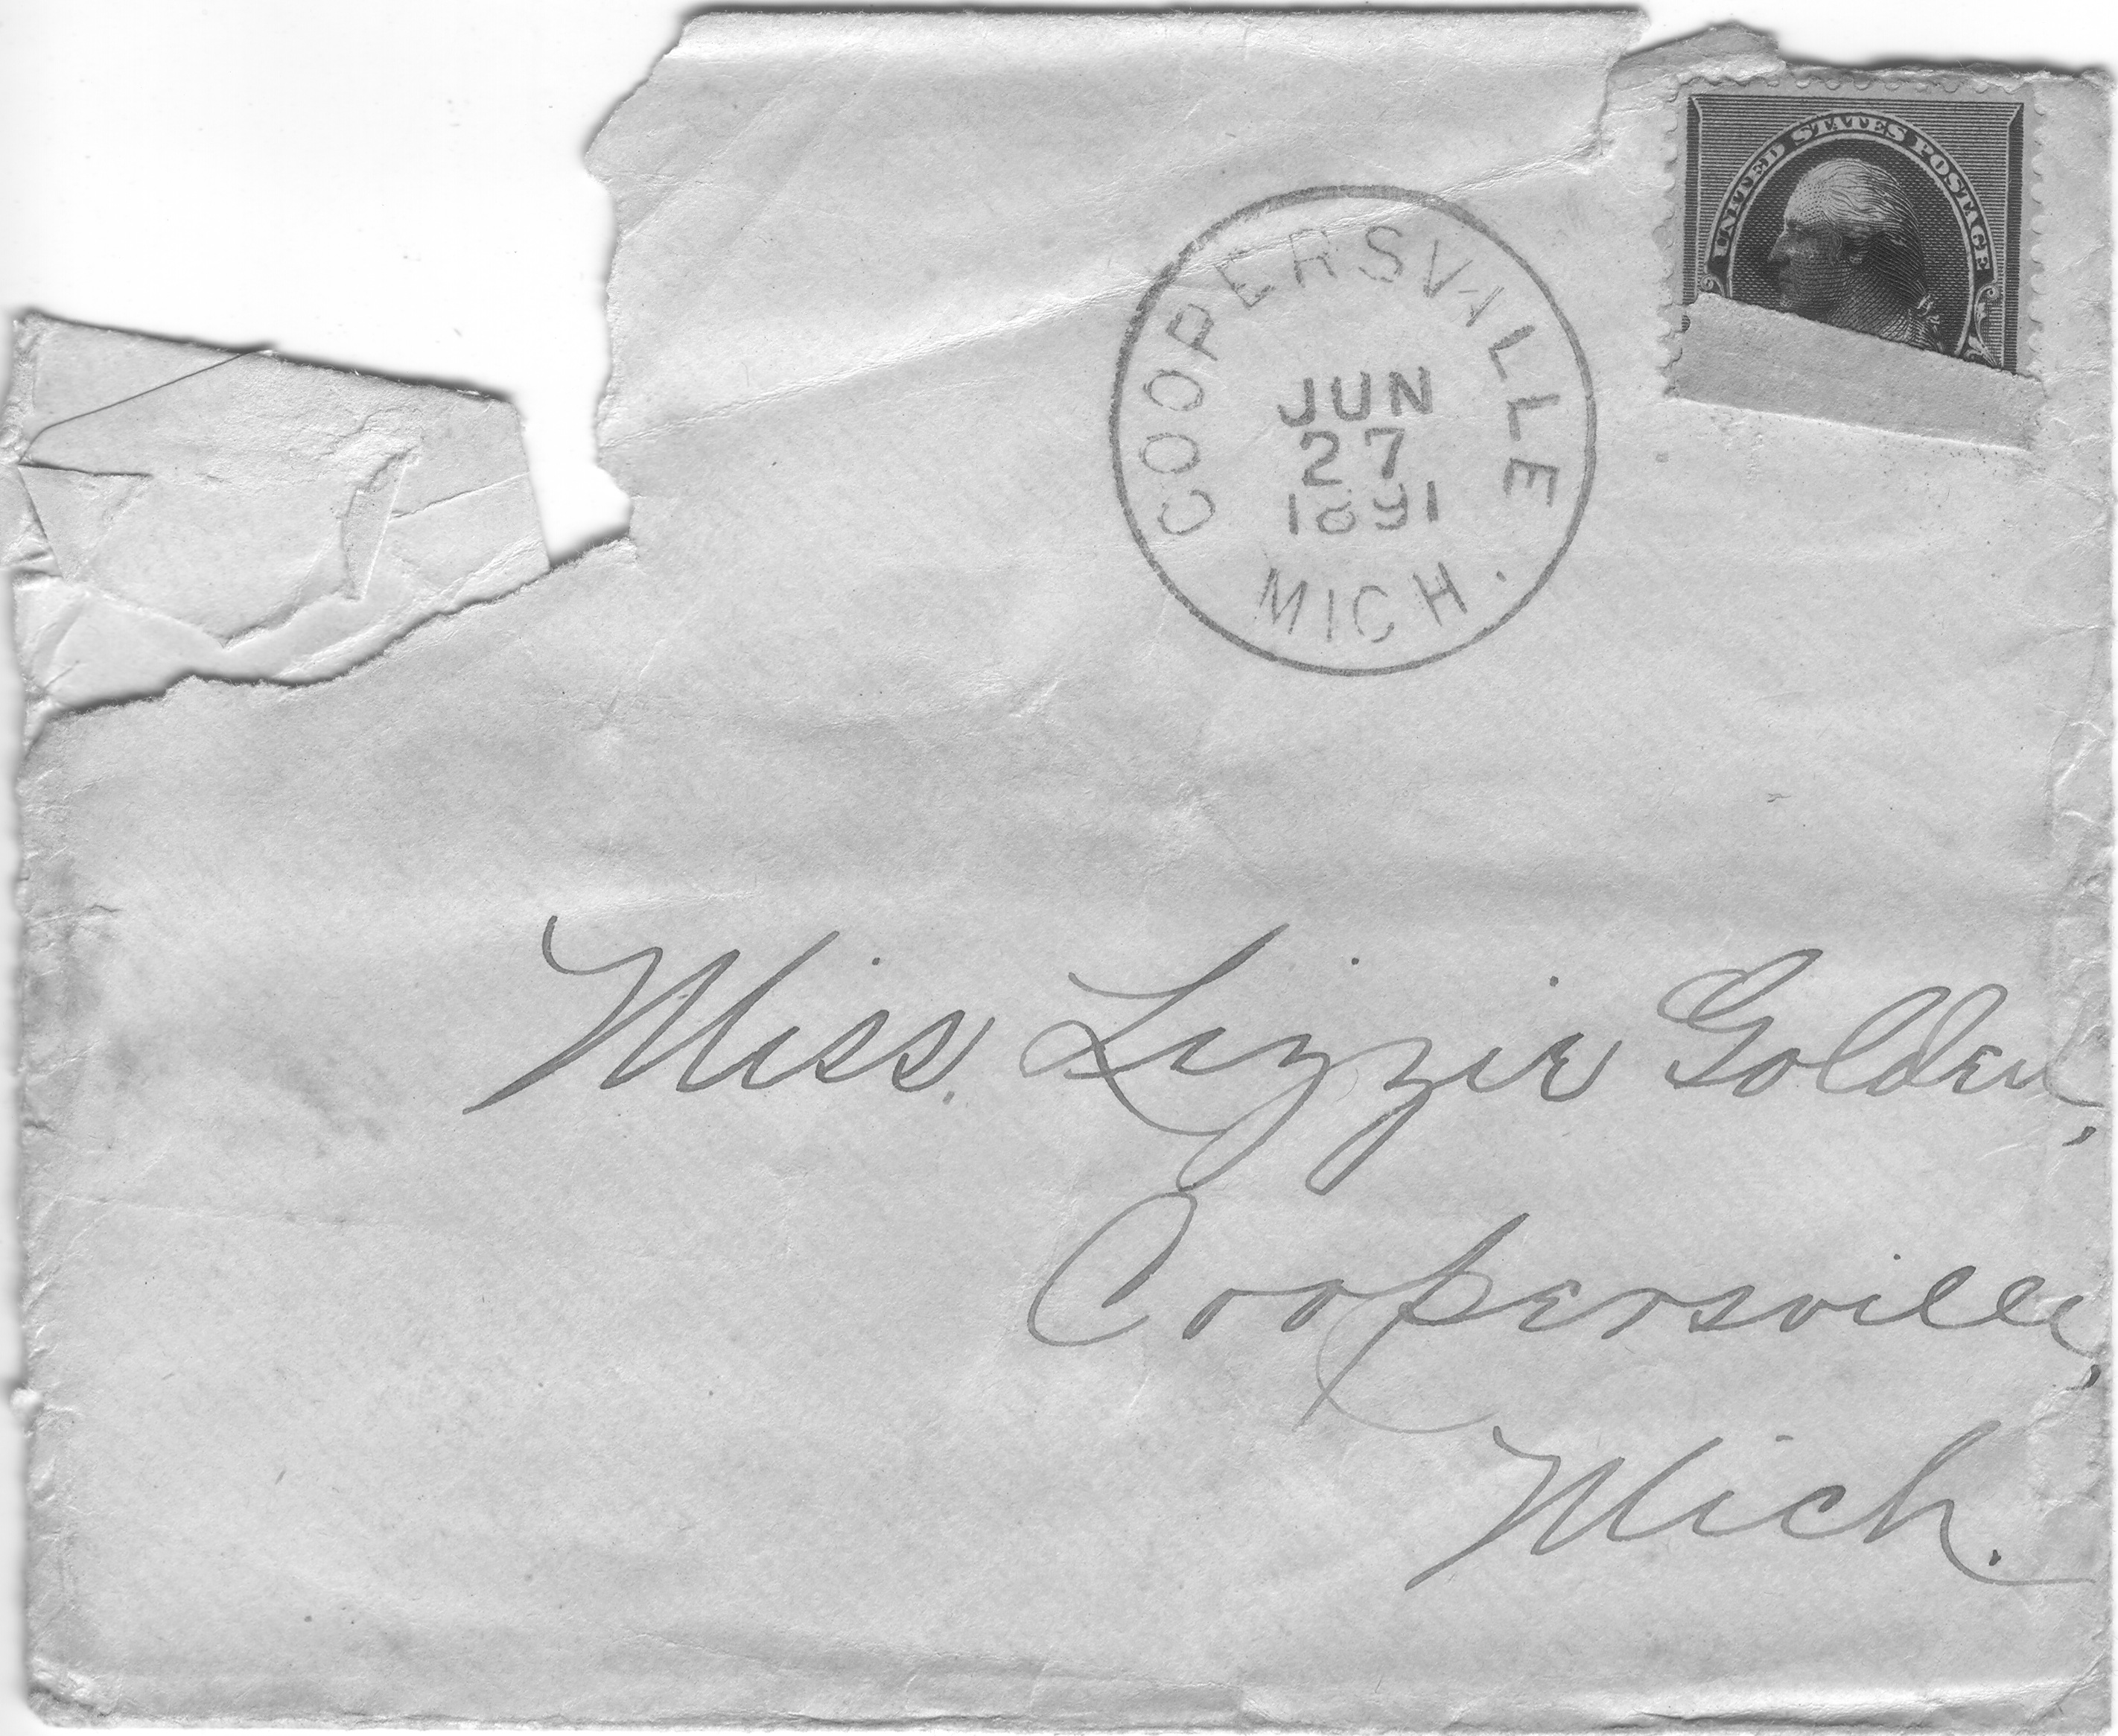 UNITED STATES POSTAGE
COOPERSVILLE
JUN
27
1891
MICH.
Miss. Lizzie Golden,
Coopersville,
Mich.